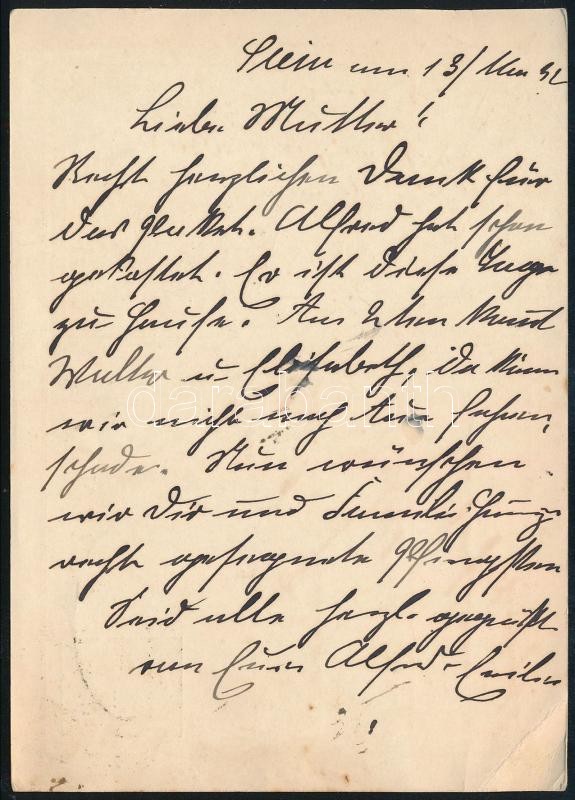 Stein am 13/Mai 32
Liebe Mutter!
Recht herzlichen Dank für
das Paket. Alfred hat schon
gekostet. Er ist diese Tage
zu Hause. Am 2ten kommt
Walter u Elisabeth, da können
wir nicht nach fahren,
schade. Nun wünschen
wir Dir und Familie
recht gesegnete Pfingsten
Seid alle herzl. gegrüßt
von Eurer Alfred
darabanth